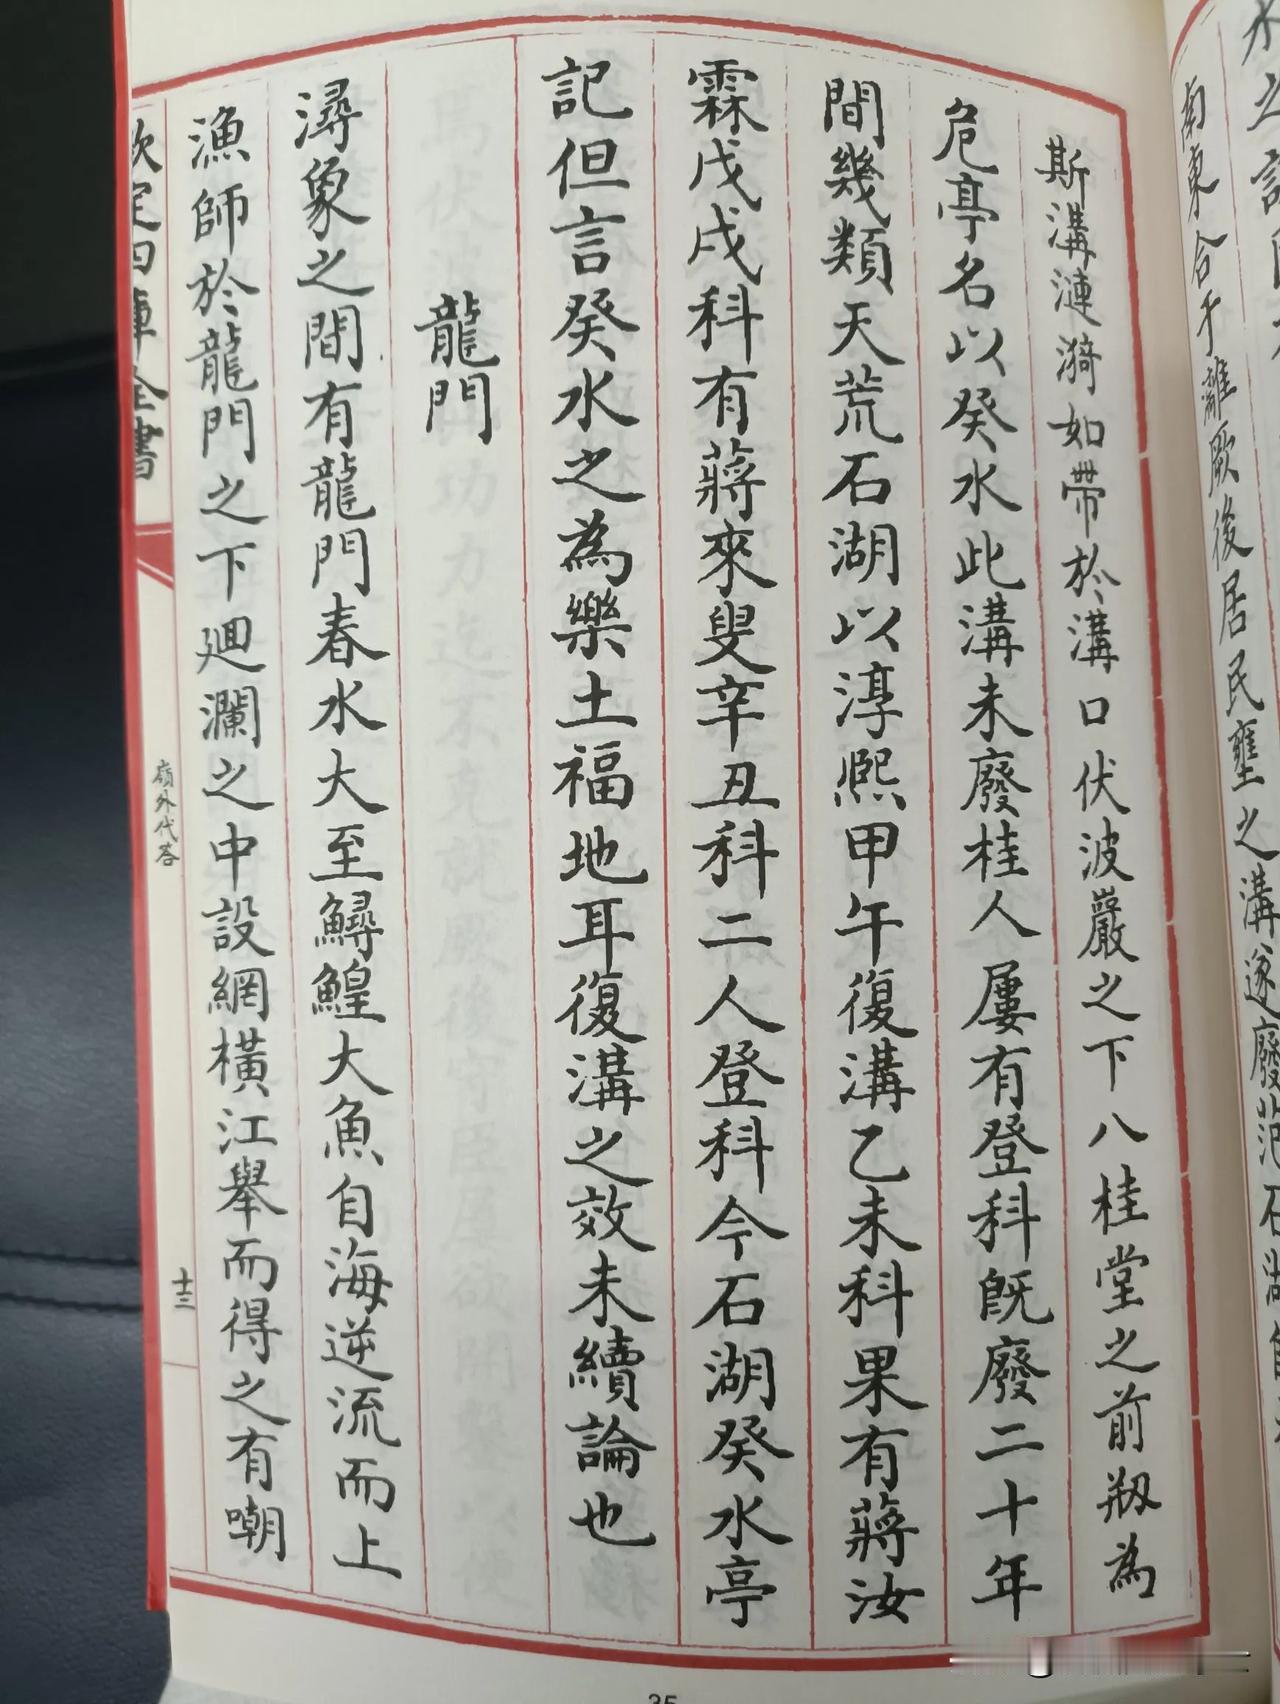 南東合于灕厥後居民壅之溝遂廢范石湖
斯溝漣漪如帶於溝口伏波巖之下八桂堂之前剏為
危亭名以癸水此溝未廢桂人屢有登科既廢二十年
間幾類天荒石湖以淳熙甲午復溝乙未科果有蔣汝
霖戊戌科有蔣來叟辛丑科二人登科今石湖癸水亭
記但言癸水之為樂土福地耳復溝之效未續論也
龍門
潯象之間有龍門春水大至鱘鰉大魚自海逆流而上
漁師於龍門之下廻瀾之中設網橫江舉而得之有嘲
欽定四庫全書
嶺外代答
十三
35